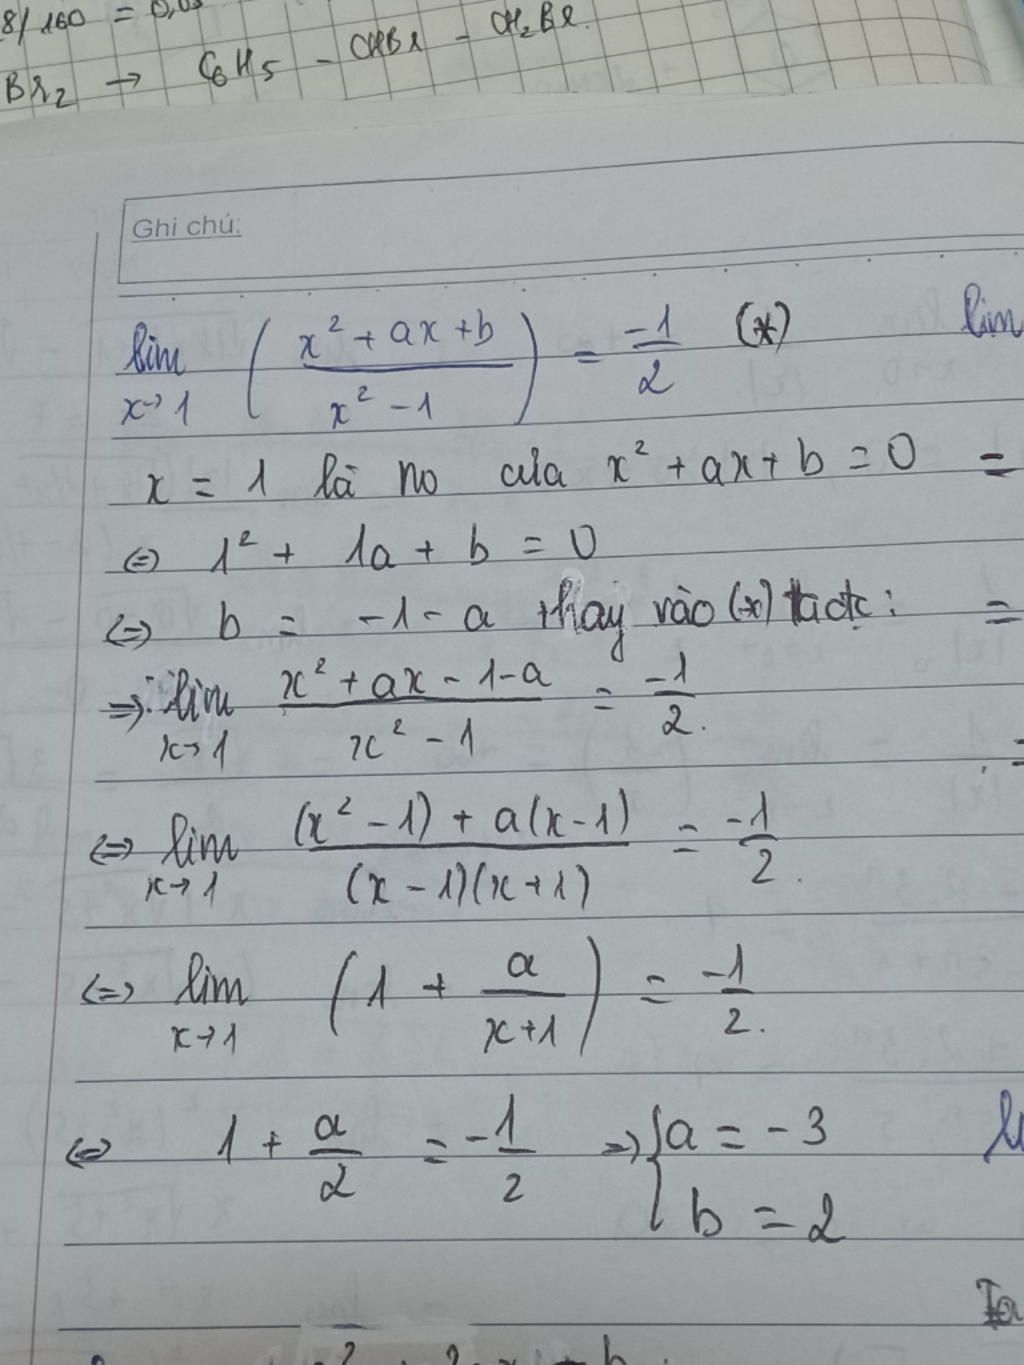 8/160 = 0,05
Br₂ → C₆H₅ - CHBr - CH₂Br.
Ghi chú:
lim x→1 ( (x² + ax + b) / (x² - 1) ) = -1/2 (*) lim
x = 1 là no của x² + ax + b = 0 =
⇔ 1² + 1a + b = 0
⇔ b = -1 - a thay vào (*) ta đc : =
⇒ lim x→1 (x² + ax - 1 - a) / (x² - 1) = -1/2. =
⇔ lim x→1 ((x² - 1) + a(x - 1)) / ((x - 1)(x + 1)) = -1/2.
⇔ lim x→1 (1 + a/(x + 1)) = -1/2.
⇔ 1 + a/2 = -1/2 ⇒ { a = -3
b = 2